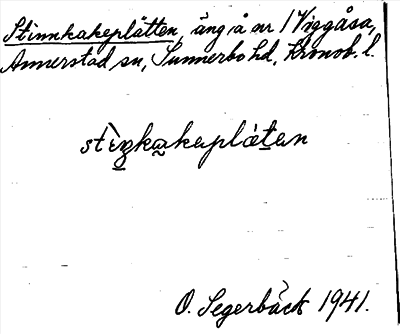 Stinnkakeplätten, äng å nr 1 Viggåsa,
Annerstad sn, Sunnerbo hd, Kronob. l.
stìn̠ka̰kaplät̠an
O. Segerbäck 1941.